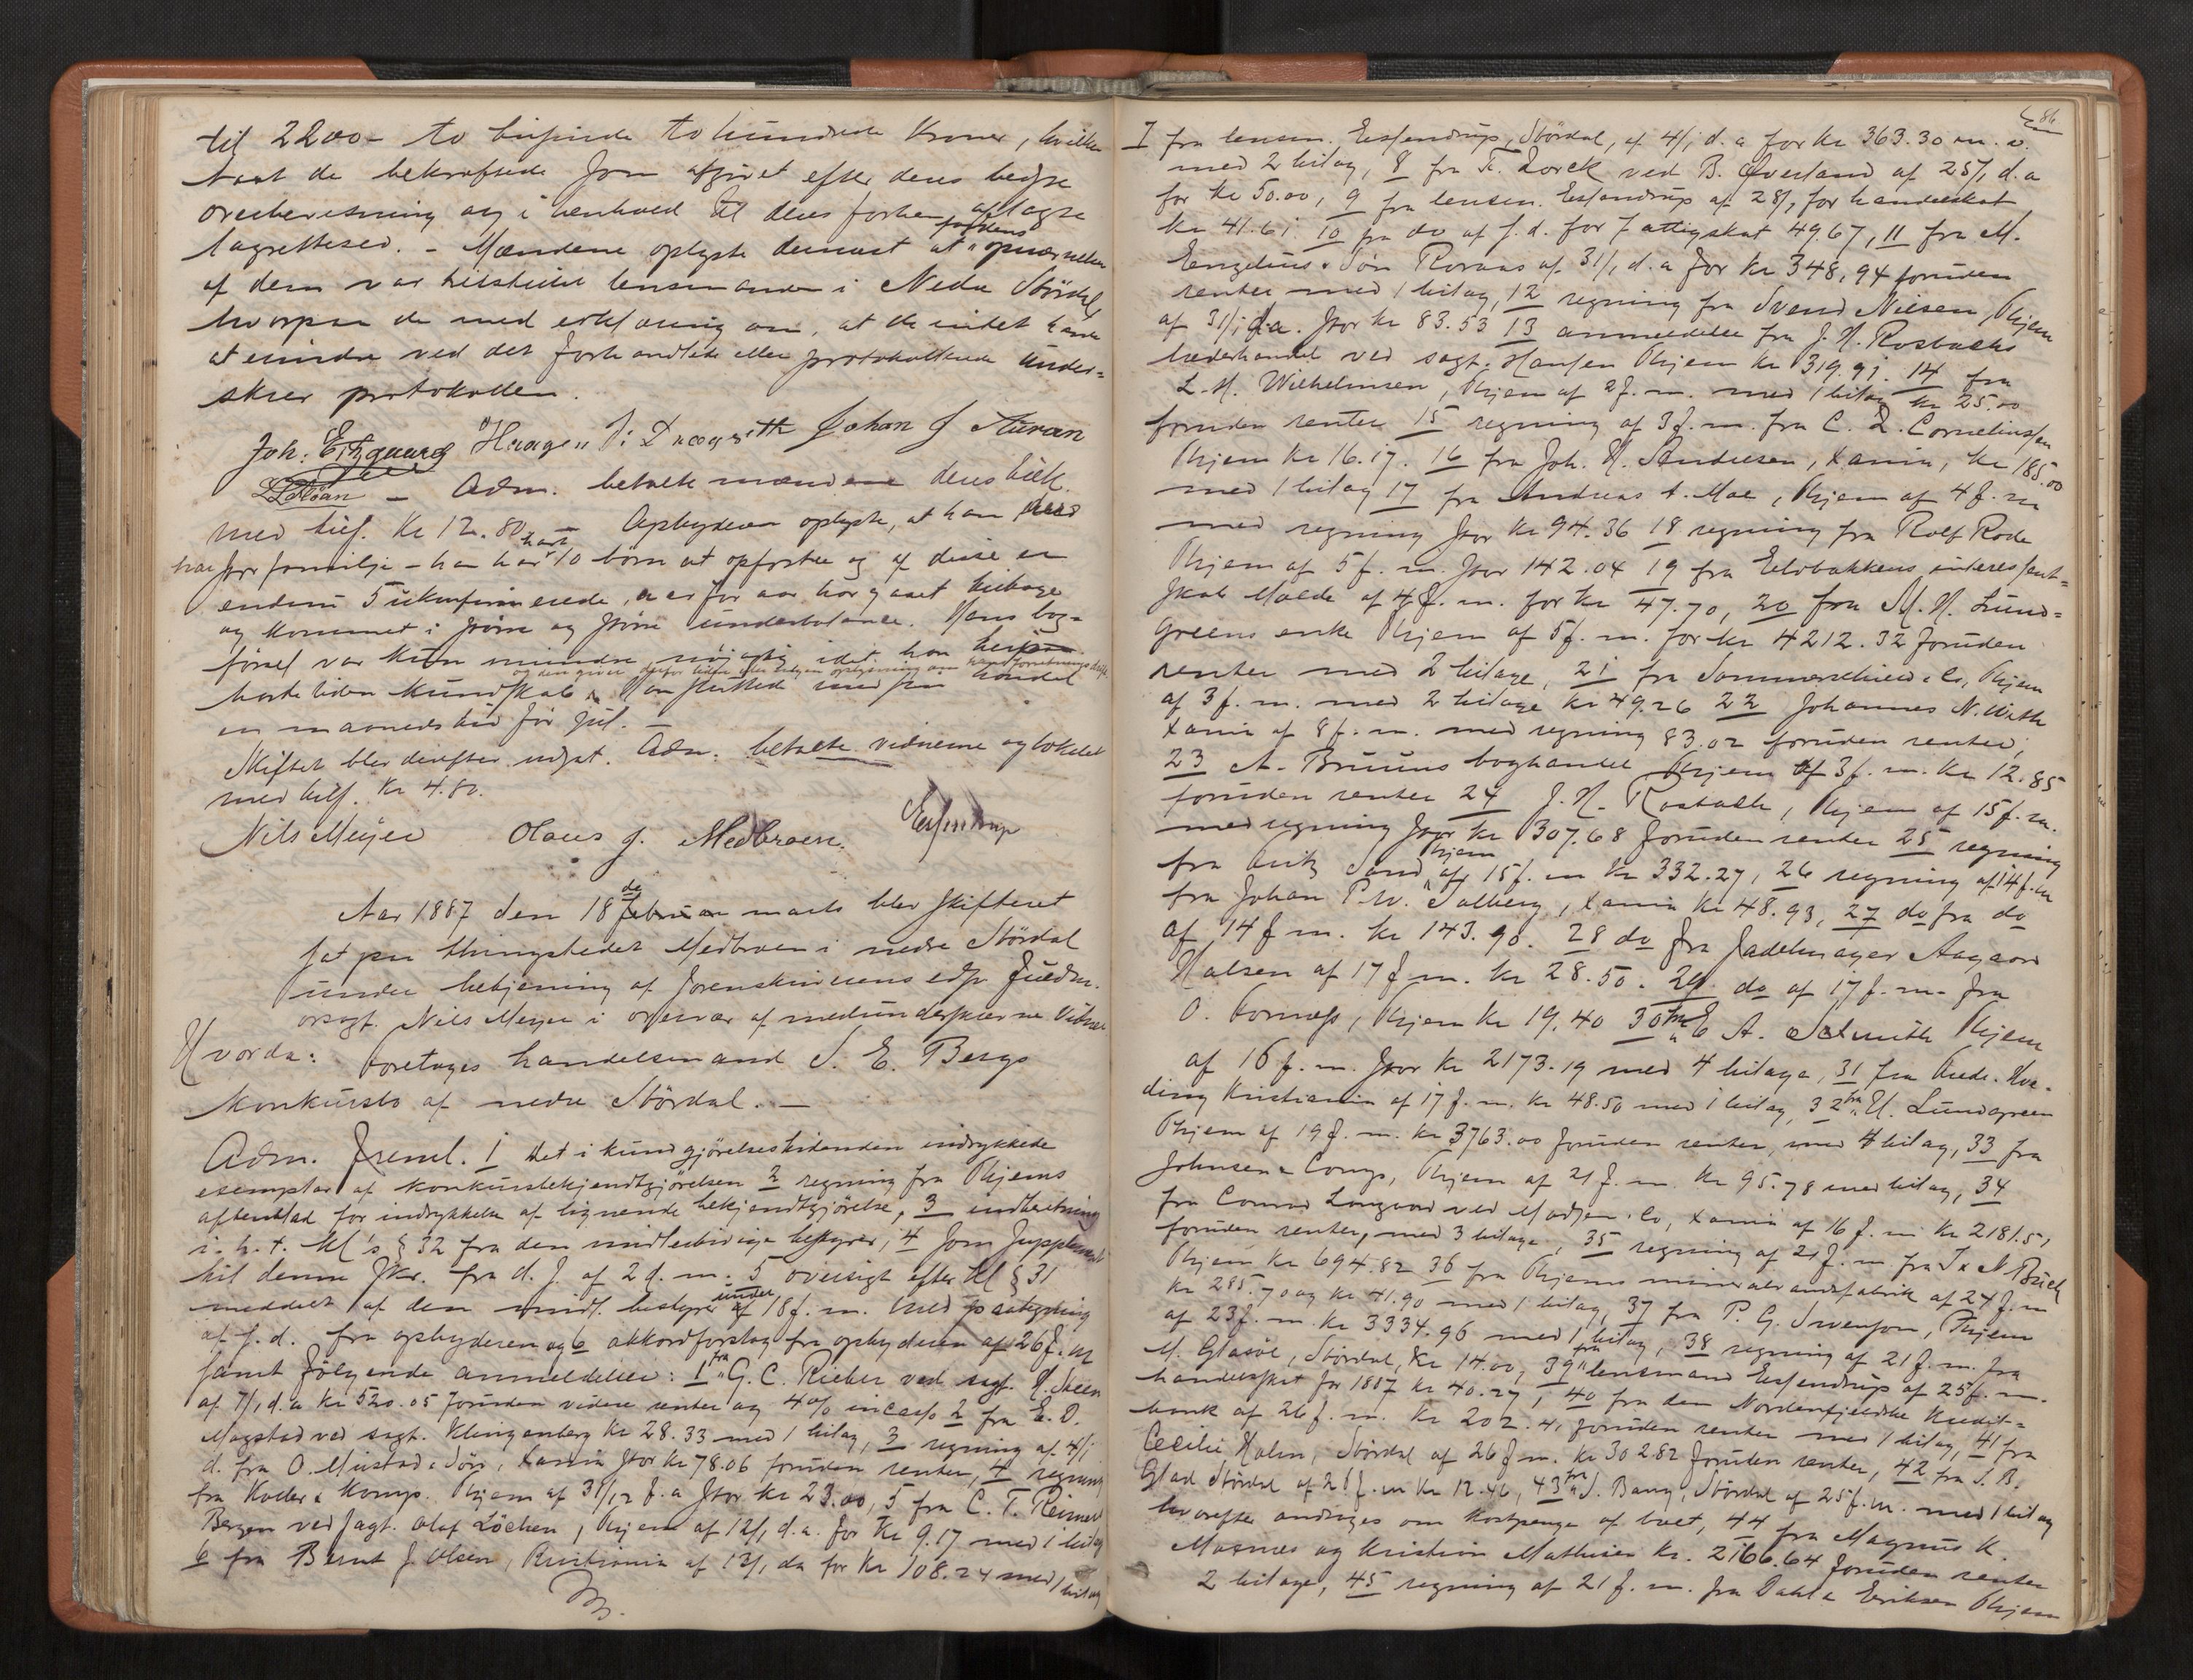 til 2200 - to tusinde to hundrede kroner, hvilken
taxt de bekræftede som afgivet efter deres bedste
overbevisning og i henhold til deres forhen aflagte
lagrettesed. - Mændene oplyste dernæst at opnævnelsen
af dem var tilstillet lensmanden i Nedre Stördal
hvorpaa de med erklæring om, at de intet havde
at erindre ved det forhandlede eller protokollerede under-
skrev protokollen.
Joh: Haagen Johan J Auran
- Adm. betalte mændene deres
med tils. Kr 12.80 Opbyderen oplyste, at han
har for familje - han har havt 10 börn at opfostre og af disse er
endnu 5 ukonfirmerede, aar for aar har gaaet tilbage
og kommet i større og større underbalance. Hans bog-
försel var kun mindre nöjagtig idet han
havde liden kundskab sluttede med sin handel
en maaneds tid før jul. -
Skiftet blev derefter udsat. Adm. betalte vidnerne og lokalet
med tils. Kr 4.80.
Nils Meyer Olaus J. Medbroen.
Aar 1887 den 18de marts blev skifteret
sat paa thingstedet Medbroen i nedre Stördal
under betjening af sorenskriverens edsv. fuldm.
Nils Meyer i overvær af medunderskrevne vidner
Hvorda: Foretoges handelsmand S. E. Bergs
konkursbo af nedre Stördal. -
Adm. freml. 1 det i kundgjörelsestidenden indrykkede
exemplar af konkursbekjendtgjörelsen 2 regning fra Thjems
aftenblad for indrykkelse af lignende bekjendtgjörelse, 3 indberetning
i. h. t. Kl's § 32 fra den midlertidige bestyrer, 4 som supplement
til denne skr. fra d. s. af 2 d. m. 5 oversigt efter Kl § 31
meddelt af den midl. bestyrer under 18 f. m. med paategning
af s. d. fra opbyderen og 6 akkordforslag fra opbyderen af 26 f. m
samt følgende anmeldelser: 1 fra G. C. Rieber ved sagf. H. Steen
af 7/1 d. a Kr 520.05 foruden videre renter og 4% incasso 2 fra E. O.
Magstad ved sagf. Klingenberg Kr 28.33 med 1 bilag, 3 regning af 4/1
d. fra O. Mustad & Sön, Xania for Kr 78.06 foruden renter, 4 regning
fra Koller & Komp. Thjem af 31/12 f. a for kr 23.00, 5 fra C. T. Reimers
Bergen ved sagf. Olaf Löchen, Thjem af 12/1 d. a. for Kr 9.17 med 1 bilag
6 fra Bernt J. Olsen, Kristiania af 13/1 da for Kr 108.24 med 1 bilag
86
fra lensm. Stördal, af 4/1 d. a for Kr 363.30 m. v.
med 2 bilag, 8 fra Lorck ved B. Øverland af 25/1 d. a
for Kr 50.00, 9 fra lensm. af 28/1 for handelsskat
Kr 41.61. 10 fra do af s. d. for fattigskat 49.67, 11 fra M.
Engelius & Sön Roraas af 31/1 d. a for Kr 348,94 foruden
renter med 1 bilag, 12 regning fra Svend Nilsen, Thjem
af 31/1 d. a. for Kr 83.53 13 anmeldelse fra J. N. Rosbachs
læderhandel ved sagf. Hansen Thjem Kr 319.91. 14 fra
L. H. Wilhelmsen, Thjem af 2 f. m. med 1 bilag Kr 25.00
foruden renter 15 regning af 3 f. m. fra C. L. Corneliussen
Thjem Kr 16.17. 16 fra Joh. H. Andresen, Xania, Kr 185.00
med 1 bilag 17 fra Andreas A. Moe, Thjem af 4 f. m
med regning for Kr 94.36 18 regning fra Rolf Rode
Thjem af 5 f. m. for 142.04 19 fra interessent-
skab Molde af 4 f. m. for Kr 47.70, 20 fra M. H. Lund-
greens enke Thjem af 5 f. m. for kr 4212.32 foruden
renter med 2 bilage, 21 fra Sommerschield & Co, Thjem
af 3 f. m. med 2 bilage Kr 49.26 22 Johannes N.
Xania af 8 f. m. med regning 83.02 foruden renter,
23 A. Bruuns boghandel Thjem af 3 f. m. Kr 12.85
foruden renter 24 J. N. Rosbach, Thjem af 15 f. m.
med regning for Kr 307.68 foruden renter 25 regning
fra Fritz Sand Thjem af 15 f. m Kr 332.27, 26 regning af 14 f. m
fra Johan P. W. Solberg, Xania Kr 48.93, 27 do fra do
af 14 f m. Kr 143.90. 28 do fra sadelmager Aagaard
Halsen af 17 f m. Kr 28.50. 29. do af 17 f. m. fra
O. Thjem Kr 19.40 30 fra E A. Smith Thjem
af 16 f. m. for Kr 2173.19 med 4 bilage, 31 fra Fredr. Hve-
ding Kristiania af 17 f. m. Kr 48.50 med 1 bilag, 32 fra H. Lundgreen
Thjem af 19 f. m. Kr 3763.00 foruden renter, med 4 bilag, 33 fra
Johnsen & Comp, Thjem af 21 f. m. Kr 95.78 med bilag, 34
fra Conrad Langaard ved Madsen & Co, Xania af 16 f. m Kr 2181.51
foruden renter, med 3 bilage, 35 regning af 21 f. m. fra I & N Buch
Thjem Kr 694.82 36 fra Thjems mineralvandsfabrik af 24 f. m
Kr 285.70 og Kr 41.90 med 1 bilag, 37 fra P. G. Svenson, Thjem
af 23 f. m. Kr 3334.96 med 1 bilag, 38 regning af 21 f. m. fra
M. Glasöe, Stördal, Kr 14.00, 39 fra lensmand af 25 f. m.
handelsskat for 1887 Kr 40.27, 40 fra den Nordenfjeldske Kredit-
bank af 26 f. m. Kr 202.41 foruden renter med 1 bilag, 41 fra
Cecilie Holm, Stördal af 26 f m. Kr 302.82 foruden renter, 42 fra S. B.
Glad Stördal af 26 f. m Kr 12.46, 43 fra S. Bang, Stördal af 25 f. m. med 1 bilag
hvorefter andrages om kostpenge af boet, 44 fra Magnus K.
Moxnæs og Kristian Mathisen Kr. 2166.64 foruden renter
2 bilage, 45 regning af 21 f. m. fra Dahl & Eriksen Thjem